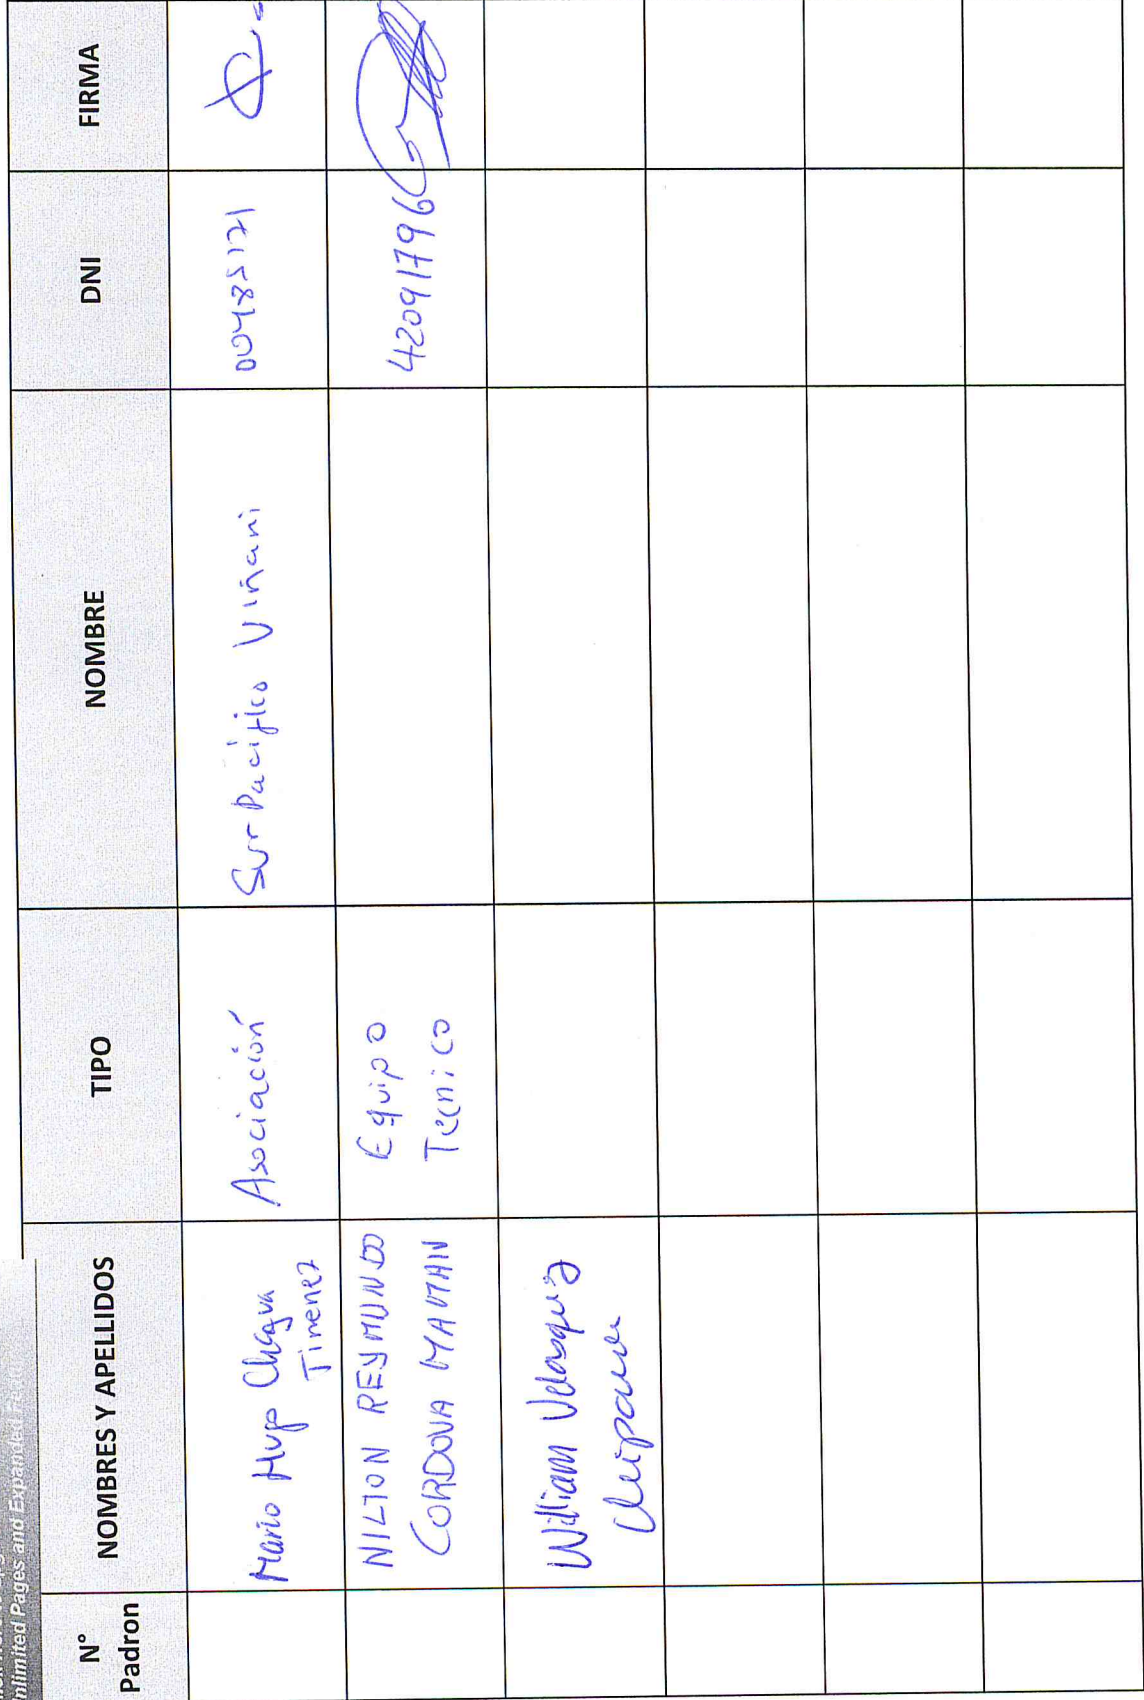 nlimited Pages and Expanded
N° Padron
NOMBRES Y APELLIDOS
TIPO
NOMBRE
DNI
FIRMA
Mario Hugo Chagua
Jimenez
Asociación
Sur Pacifico Viñani
00485171
NILTON REYMUNDO
CORDOVA MAMAN
Equipo
Tecnico
42091796
William Velasquez